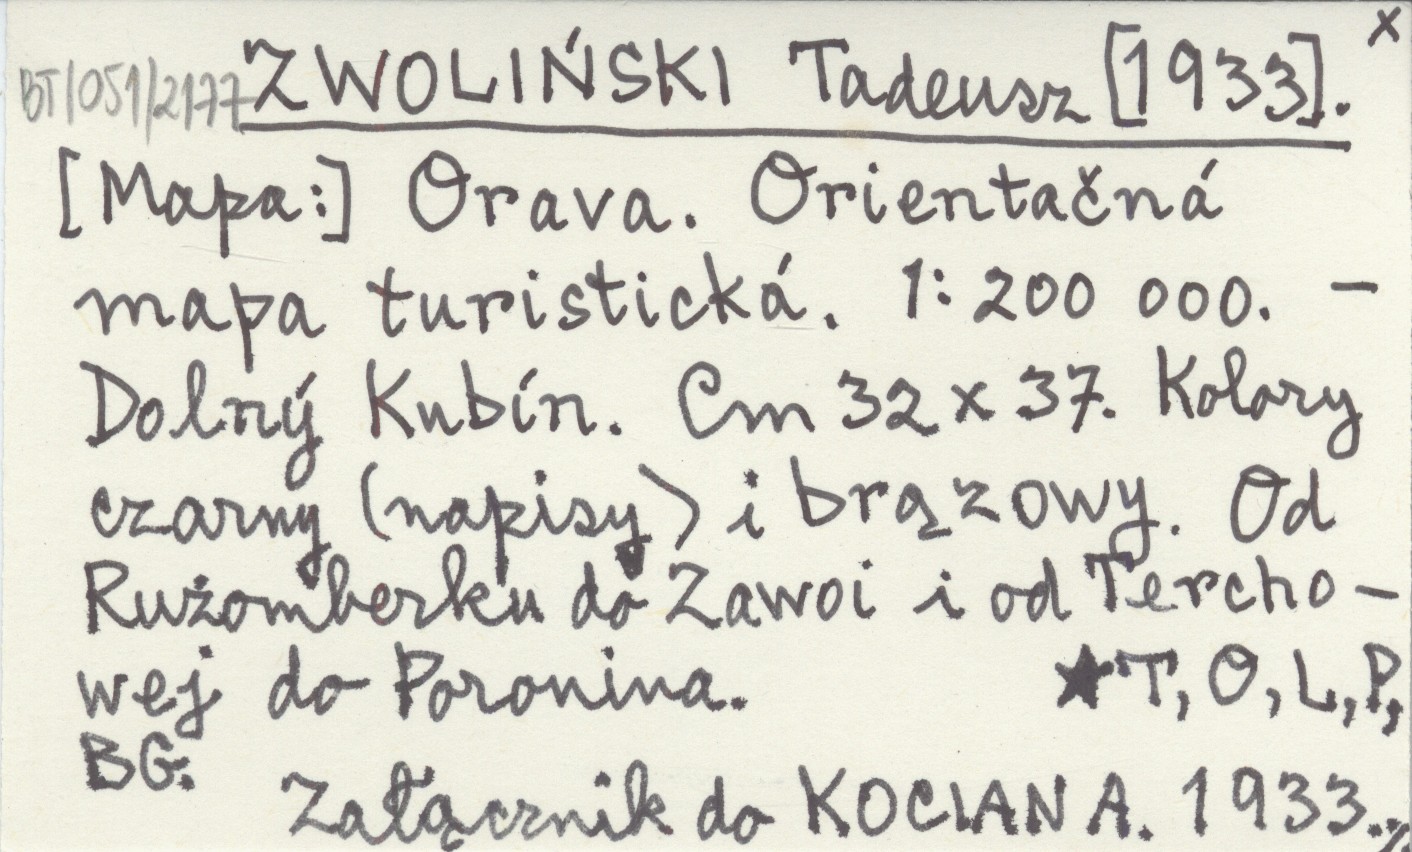 x
BT/051/2177 ZWOLIŃSKI Tadeusz [1933].
[Mapa:] Orava. Orientačná
mapa turistická. 1:200 000. –
Dolný Kubín. Cm 32 x 37. Kolory
czarny (napisy) i brązowy. Od
Rużomberku do Zawoi i od Tercho–
wej do Poronina. ★T, O, L, P,
BG.
Załącznik do KOCIAN A. 1933. ./.